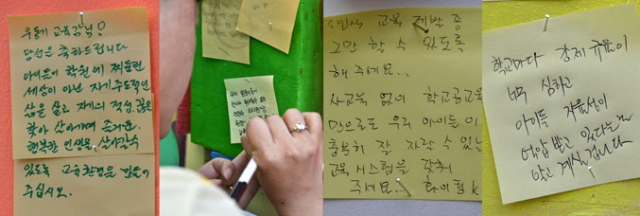 우동기 교육감님!
당선을 축하드립니다
아이들이 학원에 찌들린
세상이 아닌 자기주도적인
삶을 살고 자기의 적성
찾아 살아가며 즐거운.
행복한 인생을 살아갈수
있도록 교육환경을 만들어
주십시오.
주입식 교육 제발 좀
그만 할 수 있도록
해 주세요...
사교육 없이 학교공교육
만으로도 우리 아이들이
충분히 잘 자랄 수 있는
교육 시스템을 갖춰
주세요. 화이팅
학교마다 강제 규율이
너무 심하고
아이들 자율성이
억압 받고 있다는걸
알고 계실 겁니다